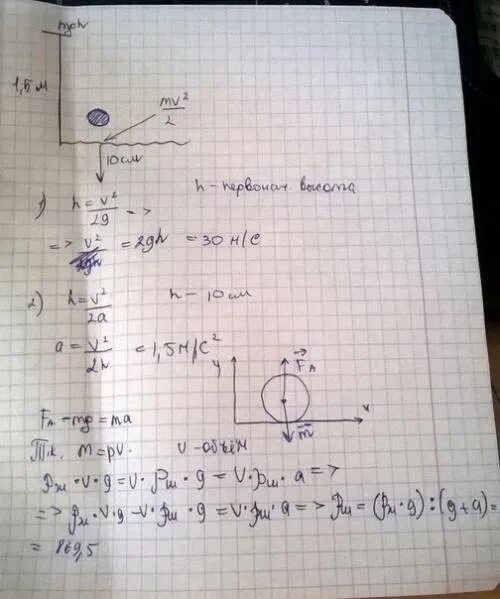 mgh
1,5 м
mv²
2
10 см
h - первонач. высота
1) h = v²/2g =>
=> v² = 2gh = 30 м/с
2) h = v²/2a    h - 10 см
a = v²/2h = 1,5 м/с²
y
F_A
x
m
F_A - mg = ma
Т.к. m = ρV.    V - объём
ρж · V · g = V · ρш · g = V · ρш · a =>
=> ρж · V · g - V · ρш · g = V · ρш · a => ρш = (ρж · g) : (g + a) =
= 869,5